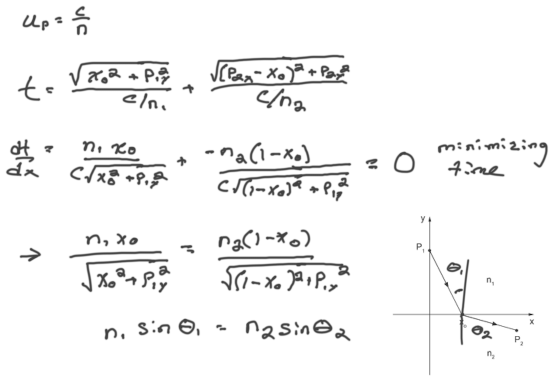 u_p = c/n
t = √(x_0² + P_1y²) / (c/n_1) + √((P_2x - x_0)² + P_2y²) / (c/n_2)
dt/dx = n_1 x_0 / (c√(x_0² + P_1y²)) + -n_2(1-x_0) / (c√((1-x_0)² + P_1y²)) = 0 minimizing
time
→ n_1 x_0 / √(x_0² + P_1y²) = n_2(1-x_0) / √((1-x_0)² + P_1y²)
n_1 sin θ_1 = n_2 sin θ_2
y
P_1
θ_1
n_1
x
θ_2
P_2
n_2